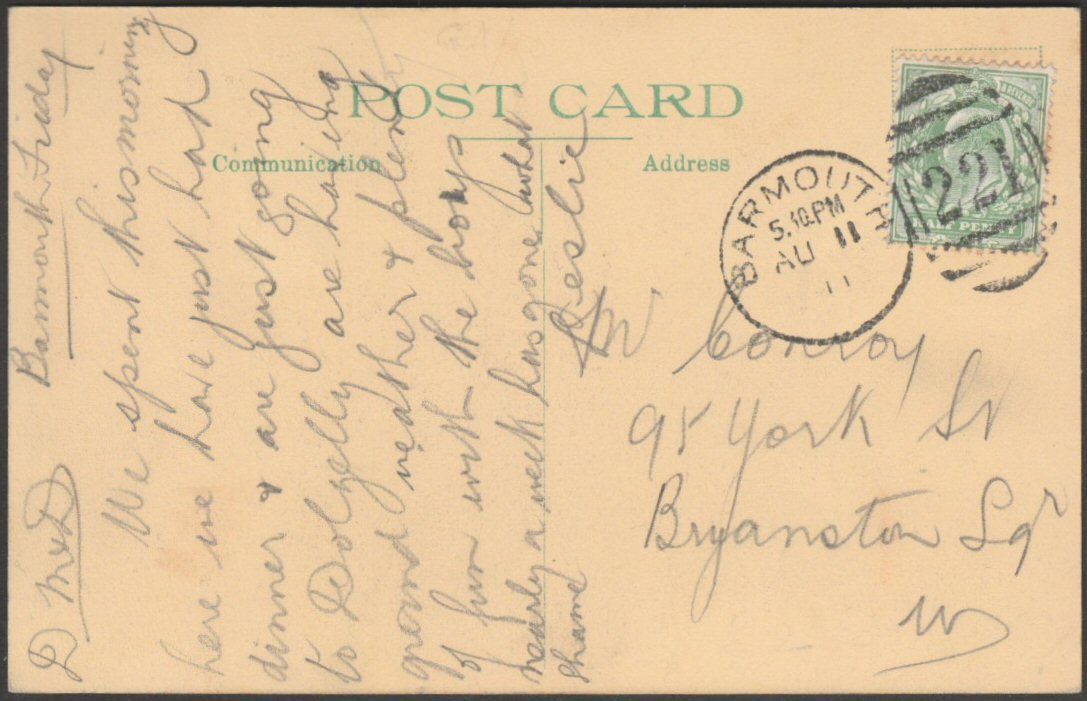 POST CARD
Communication
Address
BARMOUTH
5.30.PM
AU 11
11
221
PENNY
D M & D
Barmouth Friday
We spent this morning
here we have just had
dinner & are just going
to Dolgelly are having
grand weather & plenty
of fun with the boys
nearly a week has gone what
shame
Leslie
Mr Conroy
95 York St
Bryanston Sqr
W